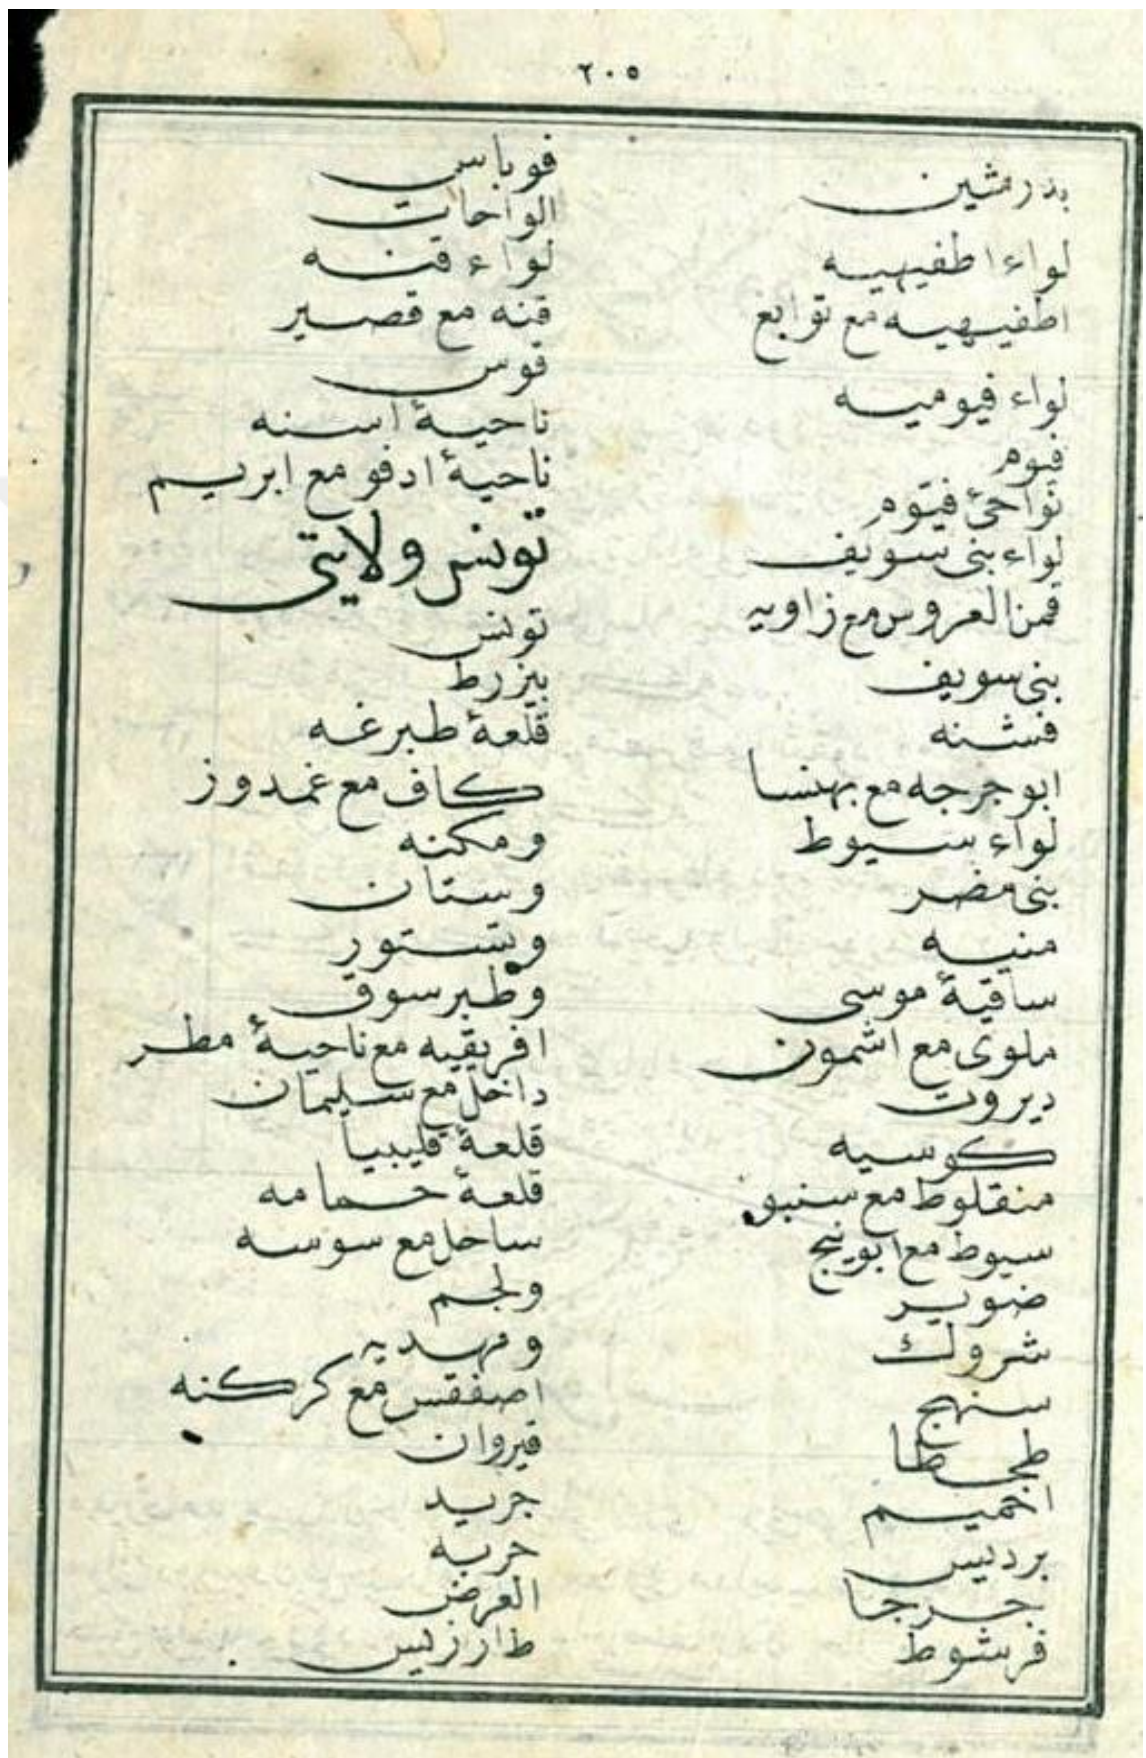 ٢٠٥
بدرمشين
لواء اطفيهيه
اطفيهيه مع توابع
لواء فيوميه
فيوم
نواحئ فيّوم
لواء بنى سويف
قمن العروس مع زاويه
بنى سويف
فشنه
ابو جرجه مع بهنسا
لواء سيوط
بنى مضر
منيه
ساقيهٔ موسى
ملوى مع اشمون
ديروت
كوسيه
منقلوط مع سنبو
سيوط مع ابويتج
ضوير
شروك
سنهج
طجطا
اخميم
برديس
جرجا
فرشوط
فوباس
الواحات
لواء قنه
قنه مع قصير
قوس
ناحيهٔ اسنه
ناحيهٔ ادفو مع ابريم
تونس ولايتى
تونس
بيزرط
قلعهٔ طبرغه
كاف مع غمدوز
ومكنه
وستان
وتستور
وطبرسوق
افريقيه مع ناحيهٔ مطر
داخل مع سليمان
قلعهٔ قليبيا
قلعهٔ حمامه
ساحل مع سوسه
ولجم
ومهديه
اصفقس مع كركنه
قيروان
جريد
جربه
العرض
طارزيس